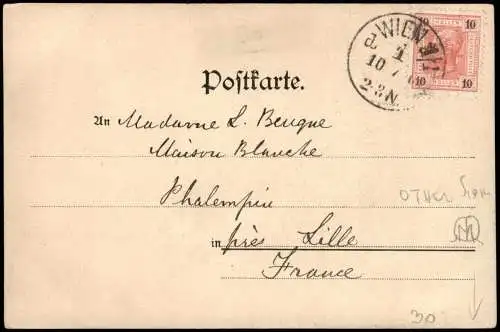 WIEN
1
10 7
2-3N
10 10
10 10
Postkarte.
An Madame L. Beugne
Maison Blanche
Phalempin
in près Lille
France
OTHER SIDE
30